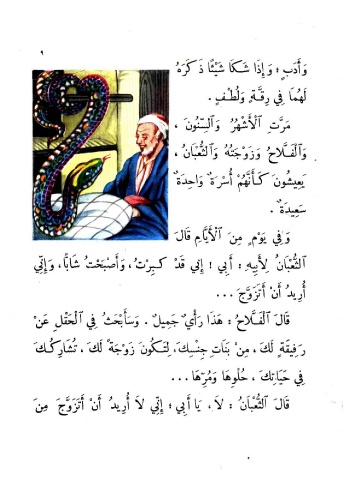 ٩
وَأَدَبٍ ؛ وَإِذَا شَكَا شَيْئًا ذَكَرَهُ
لَهُمَا فِي رِقَّةٍ وَلُطْفٍ .
مَرَّتِ ٱلْأَشْهُرُ وَٱلسِّنُونَ ،
وَٱلْفَلَّاحُ وَزَوْجَتُهُ وَٱلثُّعْبَانُ ،
يَعِيشُونَ كَأَنَّهُمْ أُسْرَةٌ وَاحِدَةٌ
سَعِيدَةٌ .
وَفِي يَوْمٍ مِنَ ٱلْأَيَّامِ قَالَ
ٱلثُّعْبَانُ لِأَبِيهِ : أَبِي ! إِنِّي قَدْ كَبِرْتُ ، وَأَصْبَحْتُ شَابًّا ، وَإِنِّي
أُرِيدُ أَنْ أَتَزَوَّجَ ...
قَالَ ٱلْفَلَّاحُ : هَذَا رَأْيٌ جَمِيلٌ . وَسَأَبْحَثُ فِي ٱلْحَقْلِ عَنْ
رَفِيقَةٍ لَكَ ، مِنْ بَنَاتِ جِنْسِكَ ، لِتَكُونَ زَوْجَةً لَكَ ، تُشَارِكُكَ
فِي حَيَاتِكَ ، حُلْوِهَا وَمُرِّهَا ...
قَالَ ٱلثُّعْبَانُ : لَا ، يَا أَبِي ؛ إِنِّي لَا أُرِيدُ أَنْ أَتَزَوَّجَ مِنَ